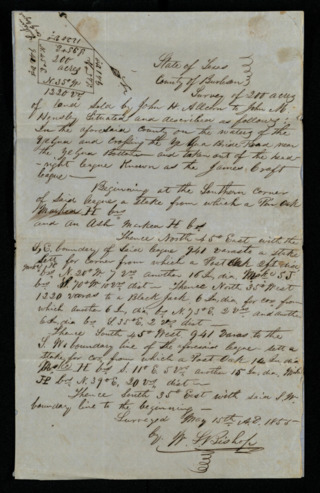 200
acres
N 35° W
1320 vrs
State of Texas
County of Burleson
Survey of 200 acres
of land sold by John H Allcorn to John M
Hensley Situated and described as follows:
In the aforesaid county on the waters of the
Yegua and Crossing the Yegua Road near
the Yegua Bottom and taken out of the head-
right league Known as the James Craft
league
Beginning at the Southern Corner
of Said league a stake from which a Pin Oak
Marked H brs
and an Ash Marked H brs
Thence North 45° East with the
S.E. boundary of Said league 941 varas to a stake
sett for corner from which a Post Oak
brs N 20° W 7 vrs another 16 In dia Mark
brs S 70° W 10 vrs dist - Thence North 35° West
1320 varas to a Black Jack 6 In dia for cor from
which another 6 In dia brs N 73° E 3 vrs and another
dia brs S 35° E 2 vrs dist -
Thence South 45° West 941 varas to the
S. W boundary line of the aforesaid league sett a
stake for cor from which a Post Oak 14 In dia
Marked H brs S. 11° E 5 vrs another 15 In dia
H brs N 39° E, 30 vrs dist -
Thence South 35° East with said S.W
boundary line to the beginning -
Surveyed May 15th A.D. 1855 -
by W. Bishop